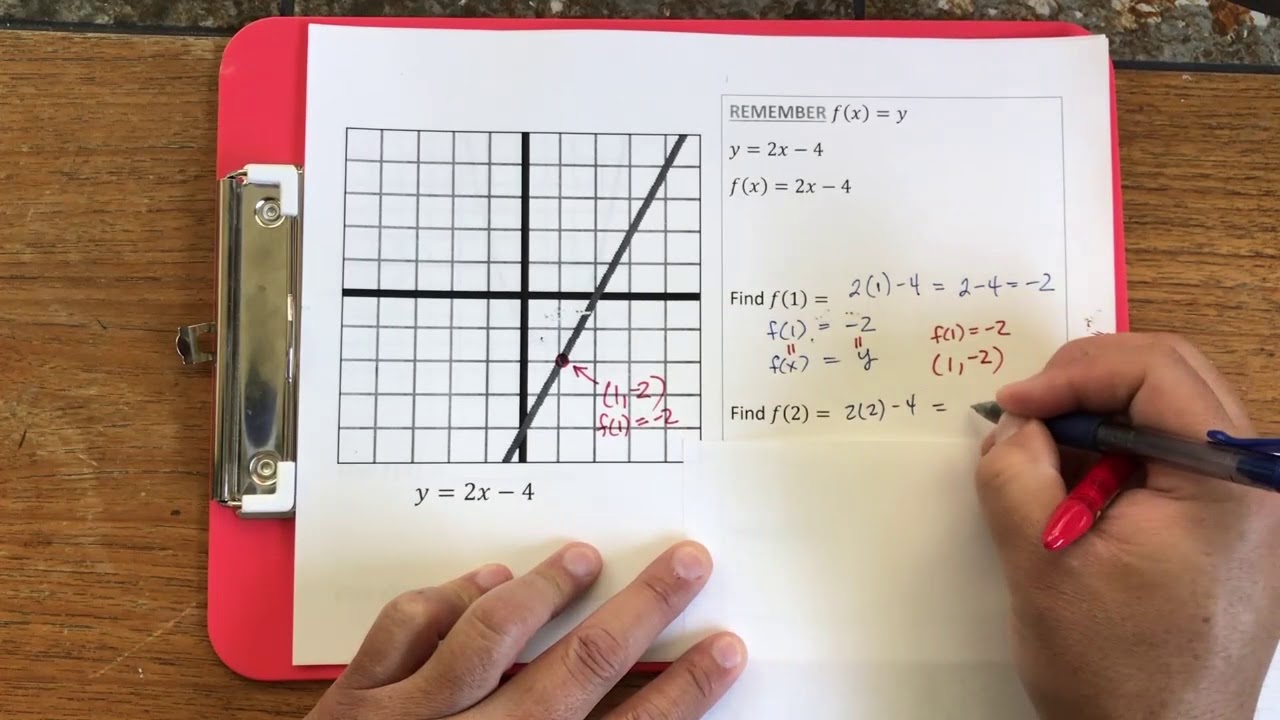 REMEMBER f(x) = y
y = 2x − 4
f(x) = 2x − 4
Find f(1) = 2(1)-4 = 2-4=-2
f(1) = -2
f(1)=-2
" "
f(x) = y
(1,-2)
Find f(2) = 2(2)-4 =
(1,-2)
f(1)=-2
y = 2x − 4